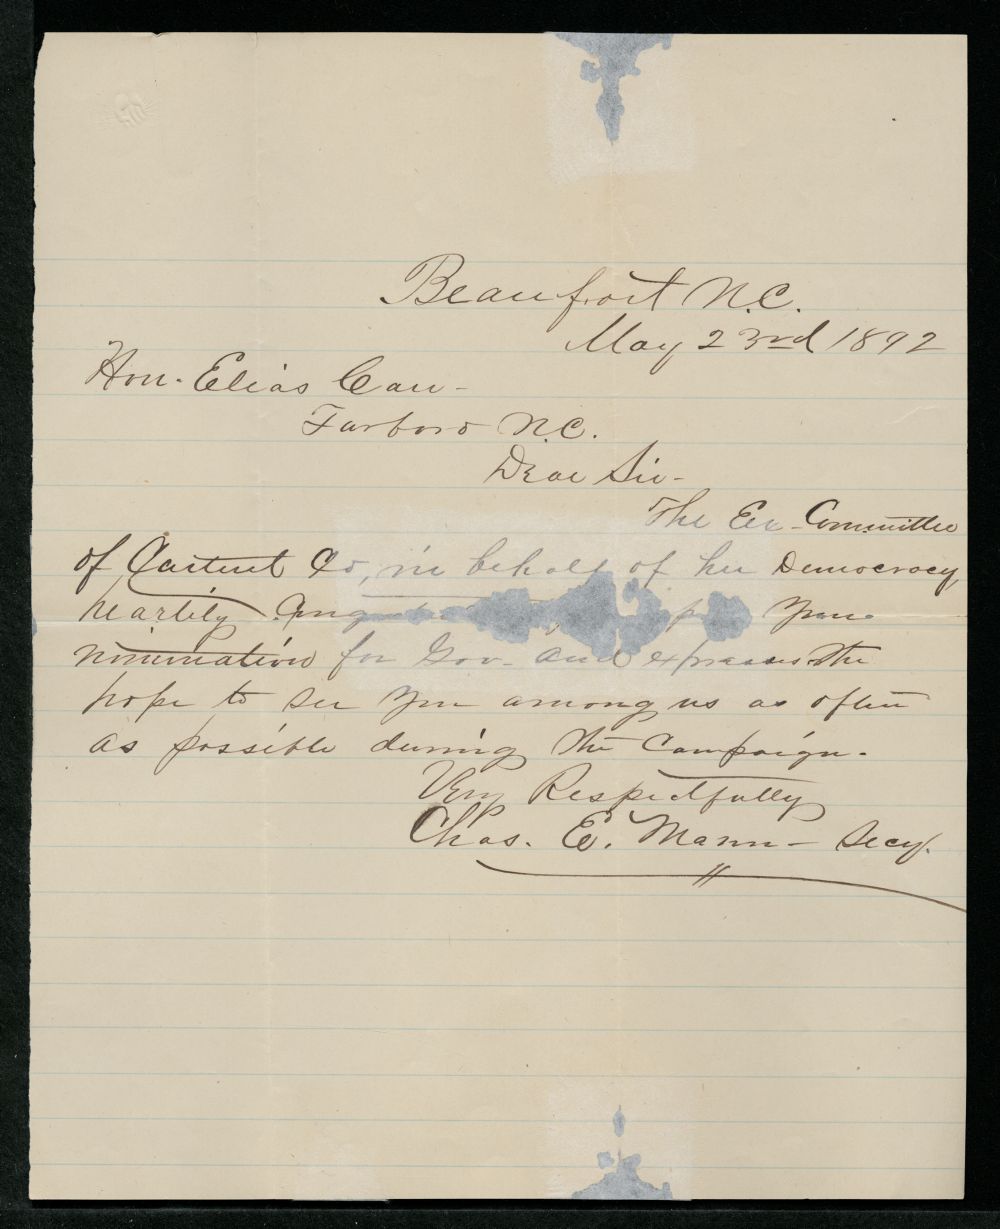 Beaufort N.C.
May 23rd 1892
Hon. Elias Carr -
Tarboro N.C.
Dear Sir -
The Ex - Committee
of Carteret Co, in behalf of her Democracy,
heartily your
nomination for Gov - and expresses the
hope to see you among us as often
as possible during the campaign.
Very Respectfully
Chas. E. Mann - Secy.